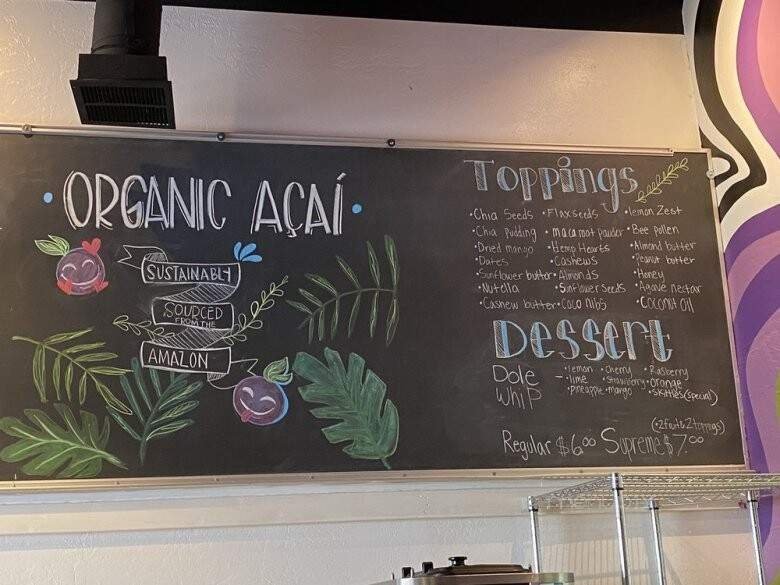 ORGANIC AÇAÍ
SUSTAINABLY
SOURCED
FROM THE
AMAZON
Toppings
•Chia Seeds •Flaxseeds •lemon Zest
•Chia pudding •maca root powder •Bee pollen
•Dried mango •Hemp Hearts •Almond butter
•Dates •Cashews •Peanut butter
•Sunflower butter •Almonds •Honey
•Nutola •Sunflower Seeds •Agave nectar
•Cashew butter •Coco nibs •Coconut oil
Dessert
Dole Whip
- •lemon •cherry •Rasberry
•lime •strawberry •orange
•pineapple •mango •skittles (special)
(•2 fruit & 2 toppings)
Regular $6.00 Supreme $7.00